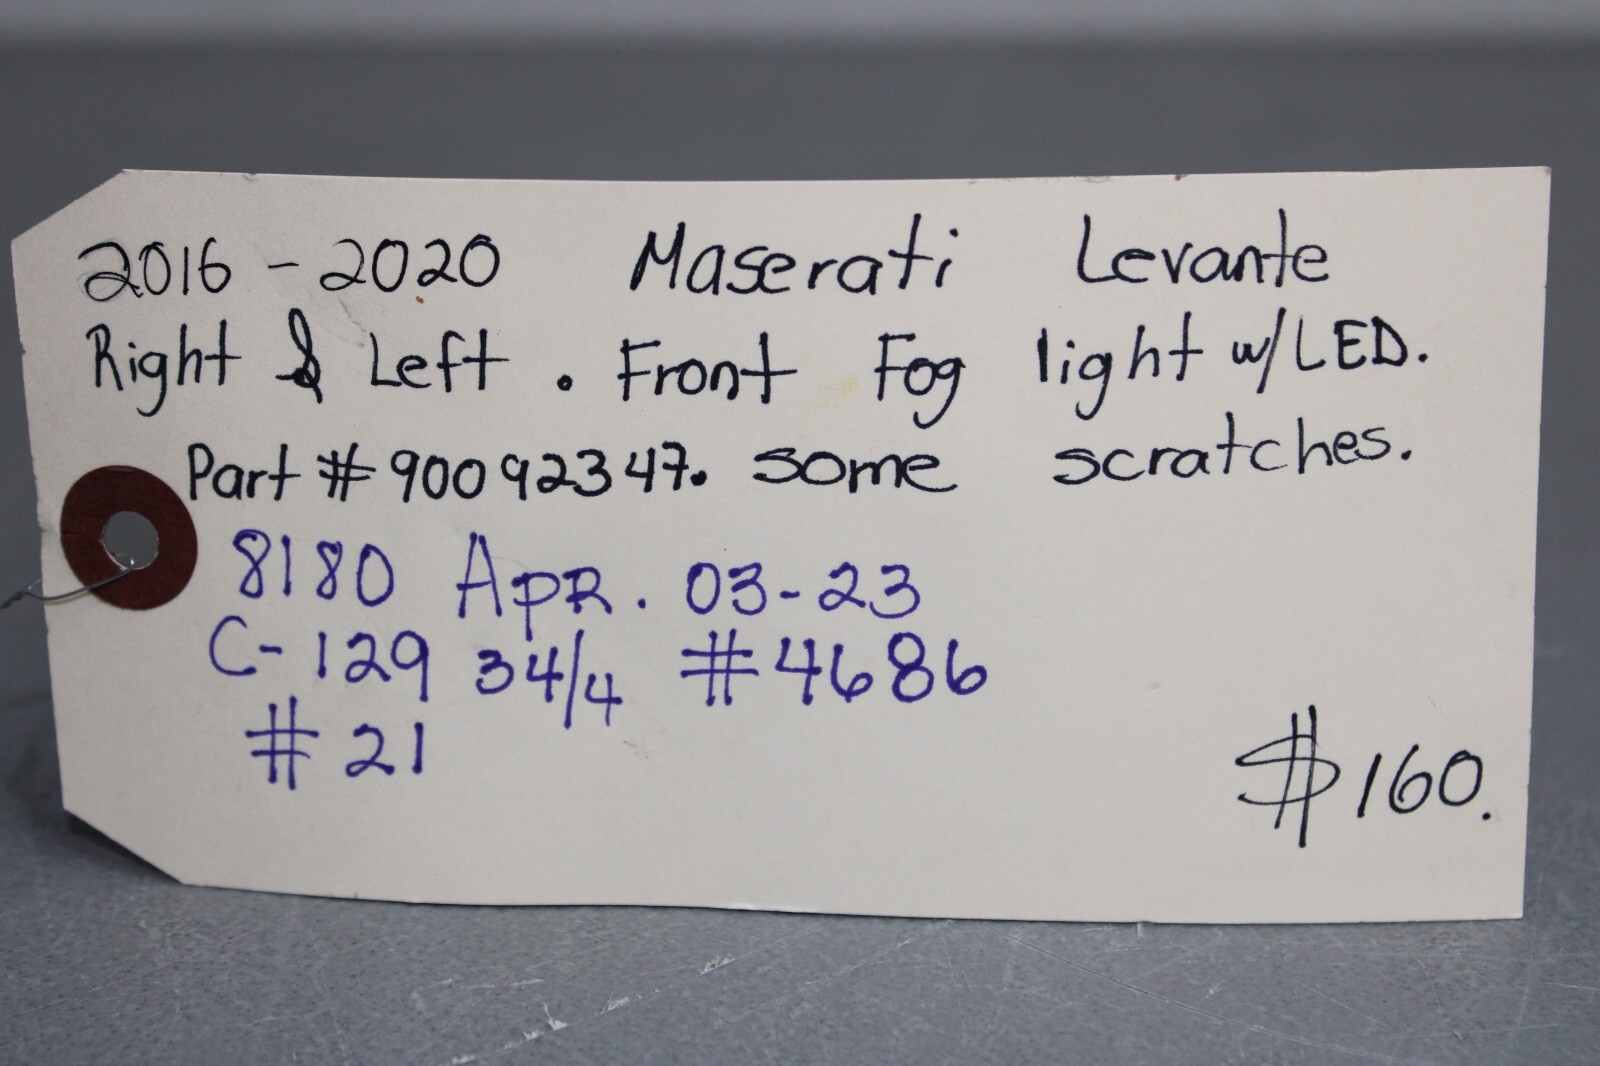 2016 - 2020 Maserati Levante
Right & Left . Front Fog light w/LED.
Part # 90092347. some scratches.
8180 Apr. 03-23
C-129 34/4 #4686
# 21
$160.